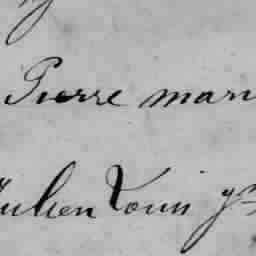 Pierre mari
Julien Louis